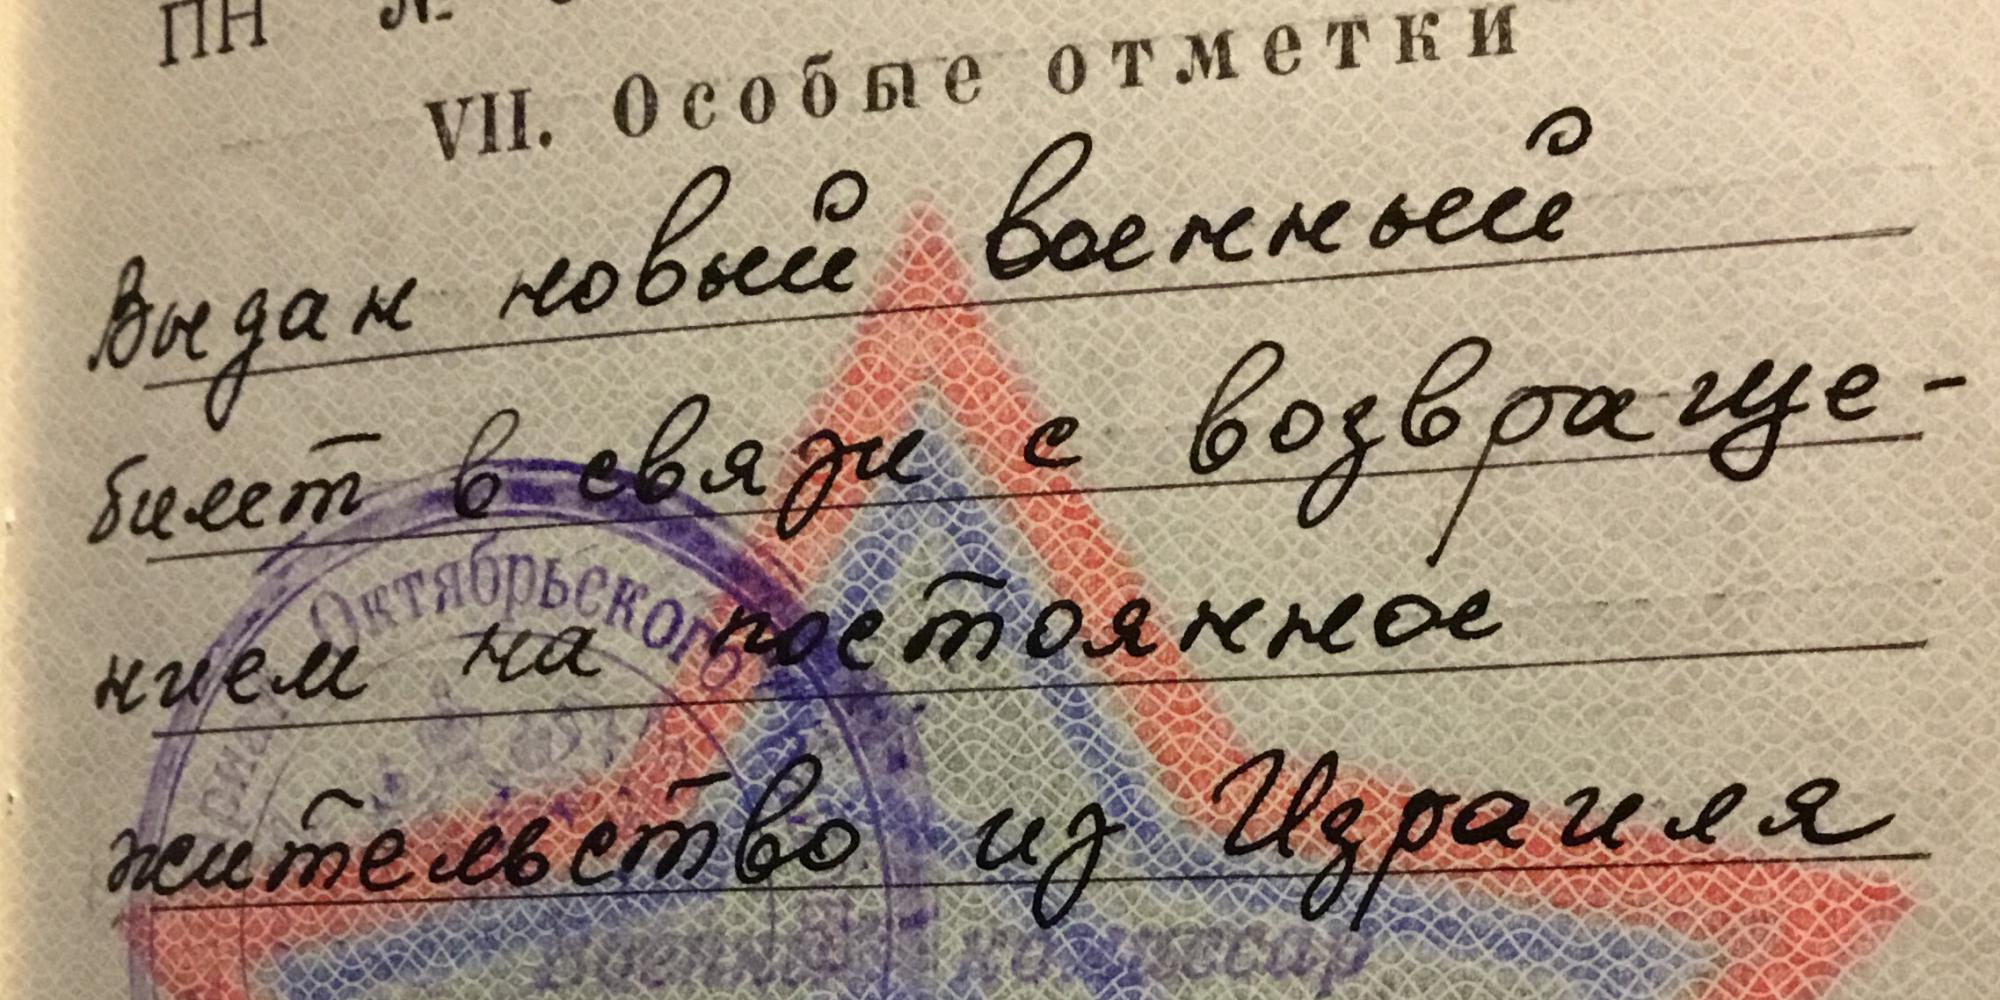 ПН №
VII. Особые отметки
Выдан новый военный
билет в связи с возвраще-
нием на постоянное
жительство из Израиля
Октябрьского
комиссар